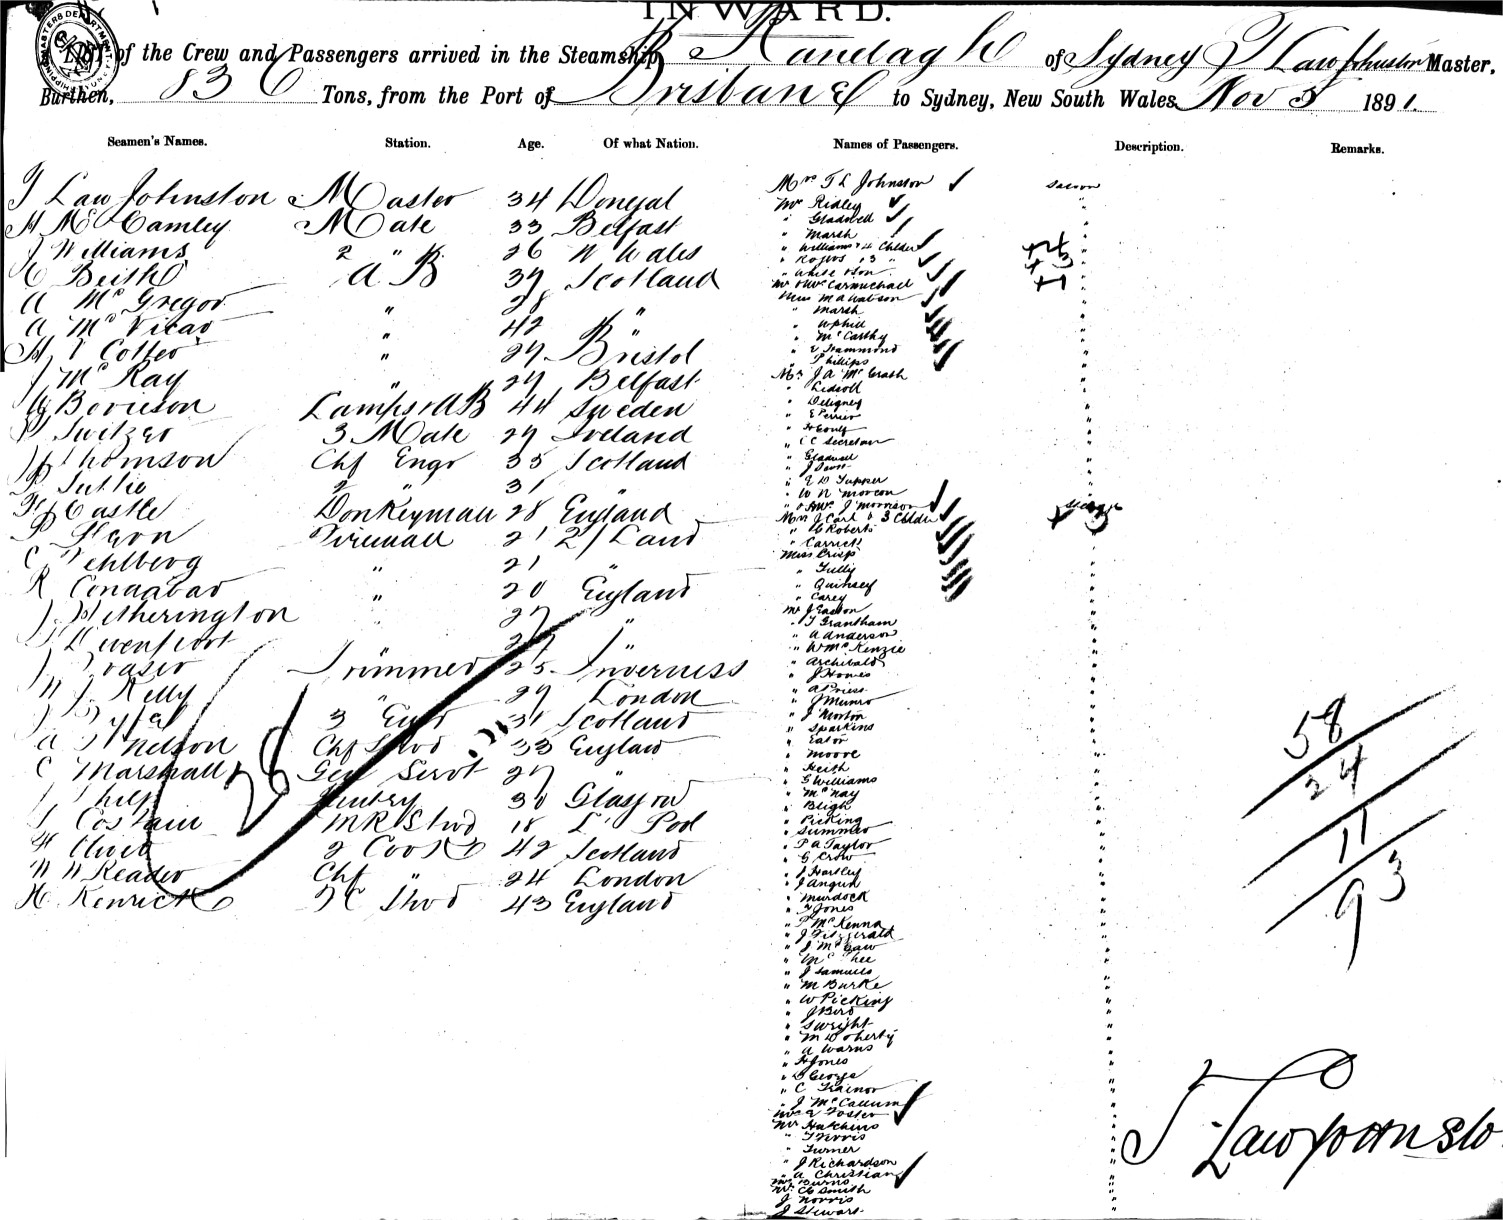 INWARD.
of the Crew and Passengers arrived in the Steamship of Sydney T Law Johnston Master,
Burthen, 836 Tons, from the Port of Brisbane to Sydney, New South Wales Nov 5 1891.
Seamen's Names. Station. Age. Of what Nation. Names of Passengers. Description. Remarks.
T Law Johnston Master 34 Donegal
H McCamley Mate 33 Belfast
J Williams 2 " 26 N Wales
AB 39 Scotland
A McGregor " 28 "
A McVicar " 42 "
H V Cotter " 29 Bristol
J McKay " 29 Belfast
Lamps & AB 44 Sweden
P Switzer 3 Mate 29 Ireland
Thomson Chf Engr 35 Scotland
2 " 31 "
Castle Donkeyman 28 England
Fireman 21
C " 21 "
R " 20 England
J Hetherington 27 "
"
J Fraser Trimmer 25 Inverness
W J Kelly " 29 London
3 Engr 31 Scotland
A Nelson Chf Stwd 33 England
C Marshall Gen Servt 27 "
Pantry 30 Glasgow
T Costain MR Stwd 18 L'Pool
H Oliver 2 Cook 42 Scotland
W W Reader Chf " 24 London
H Kenrick F C Stwd 43 England
28
Mrs T L Johnston Saloon
Mrs Ridley "
" Gladwell "
" Marsh "
" Williams & 4 Childn +4
" 3 " +3
" White & Son +1
Mr & Mrs Carmichael
Miss M A Watson
" Marsh
" Uphill
" McCarthy
" E Hammond
" Phillips
Mr J A McGrath
" Liddell
" Deligney
" E Perrier
" C C Secretan
" Gladwell
" E D Tupper
" W N Morcom
" & Mrs J Morrison
Mrs J Carl & 3 Childn Steerage + 3
" Roberts
" Carrick
Miss Crisp
" Tully
" Quinsey
" Carey
Mr J Easton
" T Grantham
" A Anderson
" W McKenzie
" Archibald
" J Howes
" A Priest
" J Munro
" J Morton
" Sparkins
" Eaton
" Moore
" Keith
" G Williams
" McKay
" Bligh
" Picking
" Summer
" P A Taylor
" G Crow
" J Hartley
" J Angus
" Murdock
" T Jones
" P McKenna
" J Fitzgerald
" J McGaw
" McPhee
" J Samuels
" M Burke
" W Picking
" J Bird
" S Wright
" M Doherty
" A Warns
" H Jones
" D George
" C Trainor
" J McCallum
Mrs E Foster
Mr Hutchins
" T Norris
" Turner
" J Richardson
" A Christian
Mrs Burns
Mr C Smith
J Norris
J Stewart
58
24
11
93
T Law Johnston